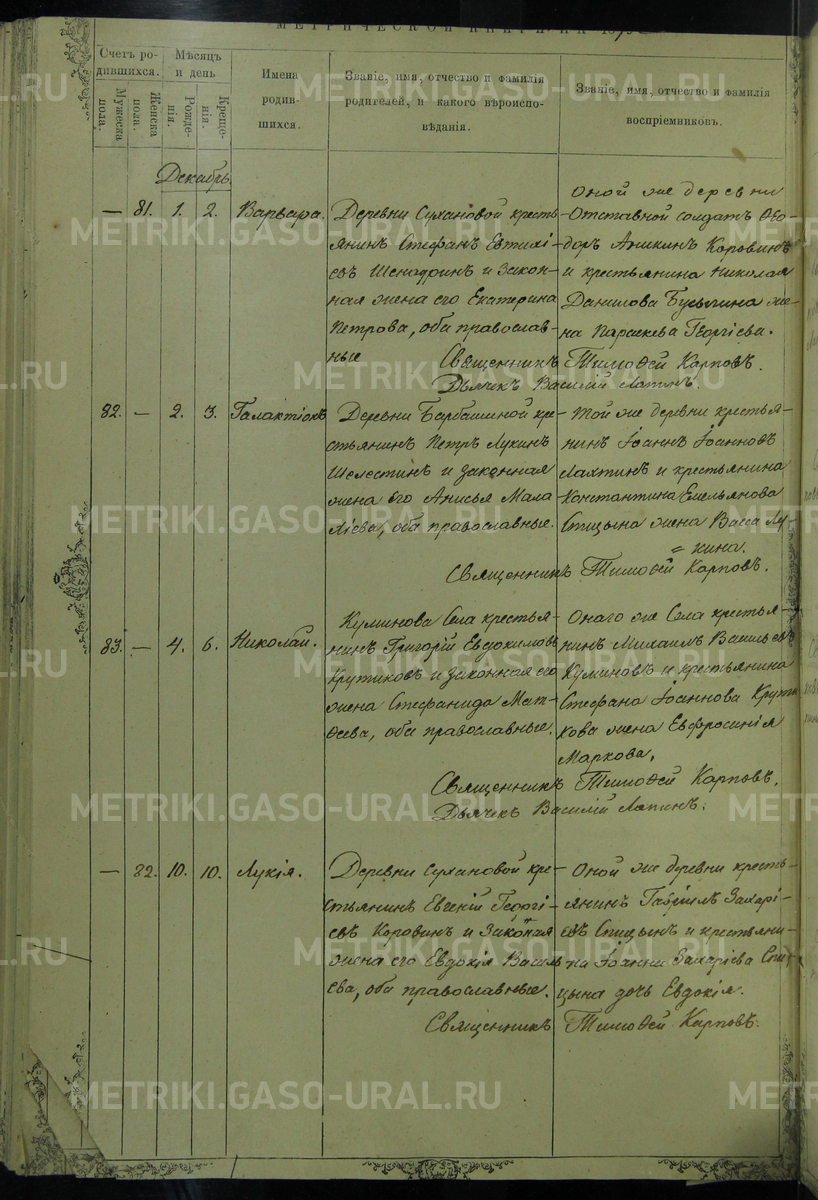 МЕТРИЧЕСКОЙ КНИГИ НА 187
Счетъ ро-
дившихся.
Мужеска
пола.
Женска
пола.
Мѣсяцъ
и день
Рожде-
нія.
Креще-
нія.
Имена
родив-
шихся.
Званіе, имя, отчество и фамилія
родителей, и какого вѣроиспо-
вѣданія.
Званіе, имя, отчество и фамилія
воспріемниковъ.
Декабрь.
— 81. 1. 2. Варвара.
Деревни Сухановой кресть-
янинъ Стефанъ Евтихі-
евъ и Закон-
ная жена его Екатерина
Петрова, оба православ-
ные
Оной же деревни
Отставной солдатъ Ѳео-
доръ Аникинъ Коровинъ
и крестьянина Николая
Данилова Бусыгина же-
на Параскева Георгіева.
Священникъ Тимоѳей Карповъ.
Дьячекъ Василій Лапинъ.
82. — 2. 3. Галактіонъ
Деревни Барбашиной кре-
стьянинъ Петръ Лукинъ
Шелестинъ и законная
жена его Анисья Мала
хіева, оба православные.
Той же деревни крестья-
нинъ Іоаннъ Іоанновъ
Лахтинъ и крестьянина
Константина Емельянова
Спицына жена Васса Лу-
= кина.
Священникъ Тимоѳей Карповъ.
83. — 4. 6. Николай.
Куминова Села крестья-
нинъ Григорій Евдокимовъ
Крутиковъ и законная его
жена Стефанида Мат-
ѳеева, оба православные.
Онаго же Села крестья-
нинъ Михаилъ Васильевъ
Куминовъ и крестьянина
Стефана Іоаннова Крути
кова жена Евфросинія
Маркова.
Священникъ Тимоѳей Карповъ.
Дьячекъ Василій Лапинъ.
— 82. 10. 10. Лукія.
Деревни Сухановой кре-
стьянинъ Евгеній Георгі-
евъ Коровинъ и Законная
жена его Евдокія Василь
ева, оба православные.
Оной же деревни кресть-
янинъ Гавріилъ Захарі-
евъ Спицынъ и крестьяни-
на Іоанна Захаріева Спи-
цына дочь Евдокія.
Священникъ Тимоѳей Карповъ.
METRIKI.GASO-URAL.RU